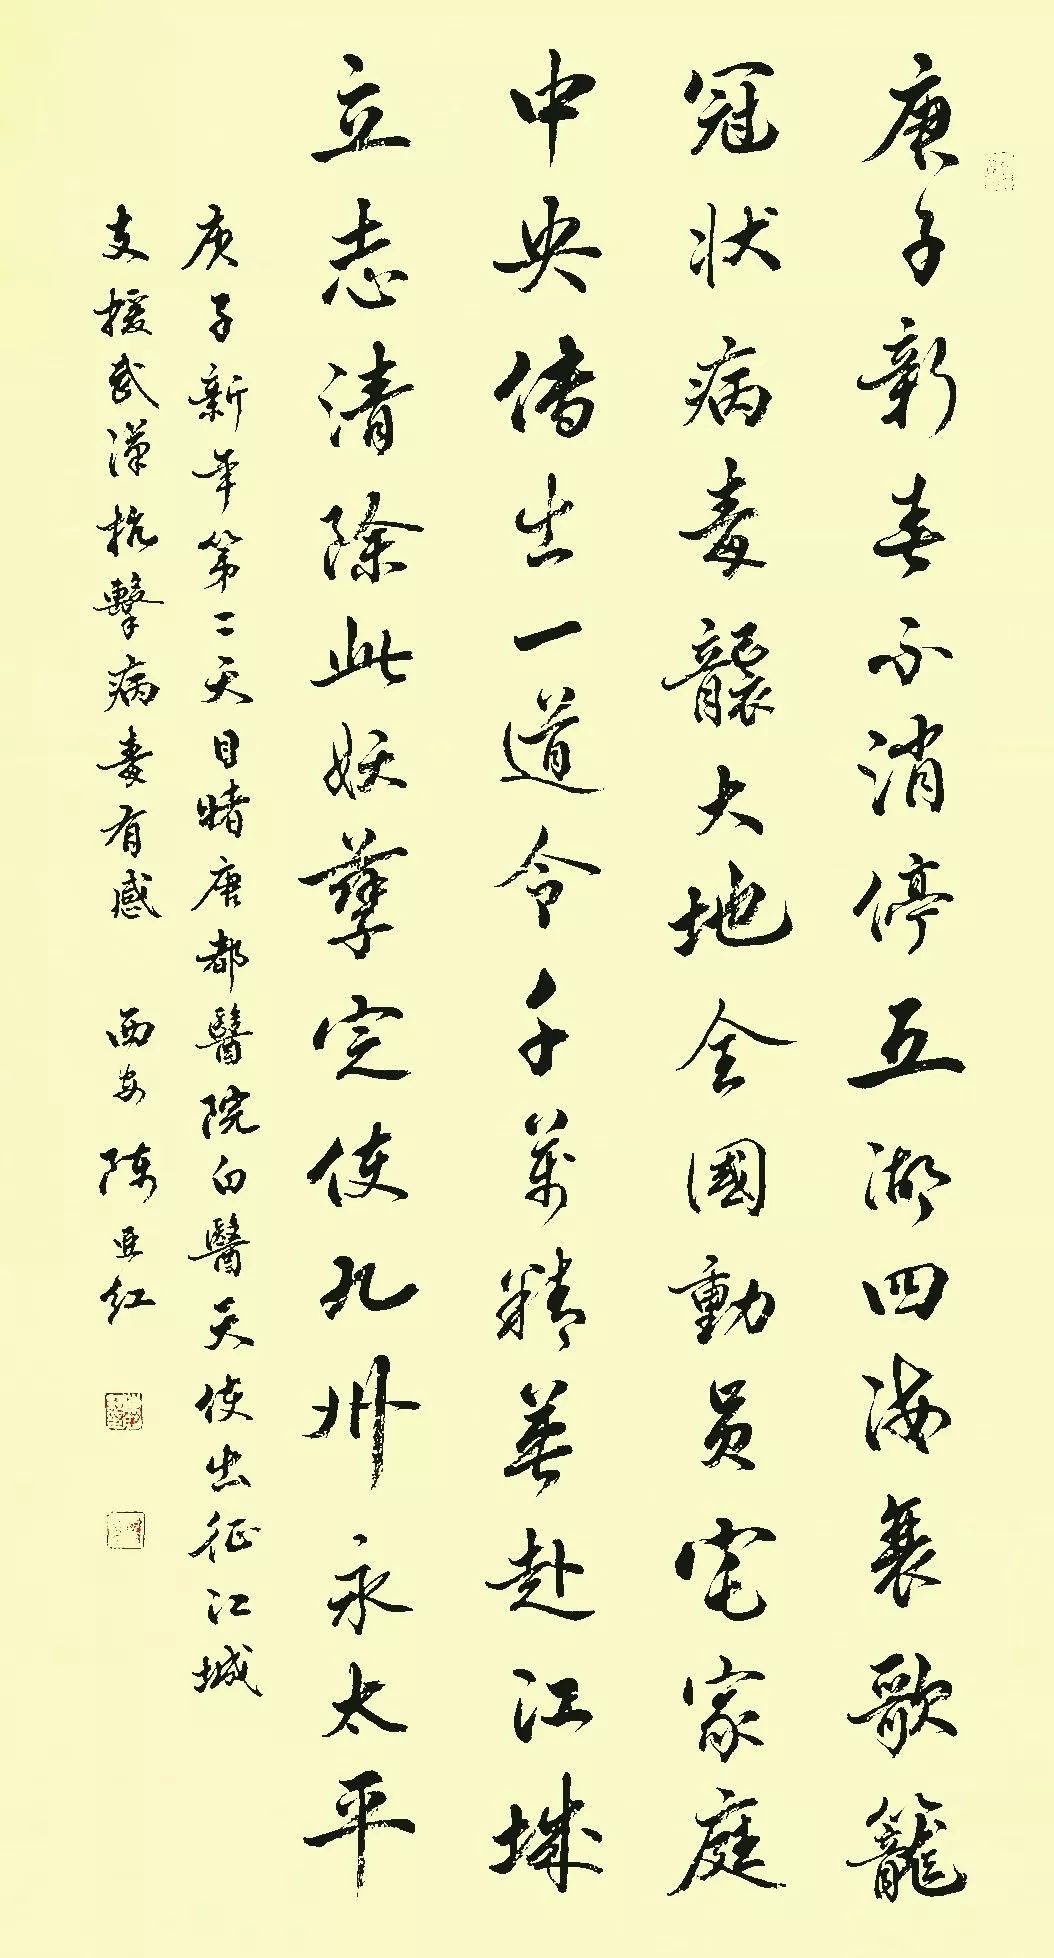 庚子新春不消停五湖四海歌籠
冠状病毒襲大地全國動员宅家庭
中央傳出一道令千萬精英赴江城
立志清除此妖孽定使九州永太平
庚子新年第二天目睹唐都醫院白醫天使出征江城
支援武漢抗擊病毒有感 西安陈亚红